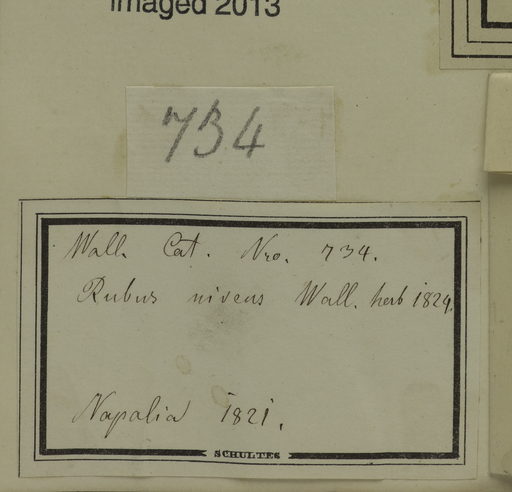 imaged 2013
734
Wall. Cat. Nro. 734.
Rubus niveus Wall. herb 1824.
Napalia 1821.
SCHULTES